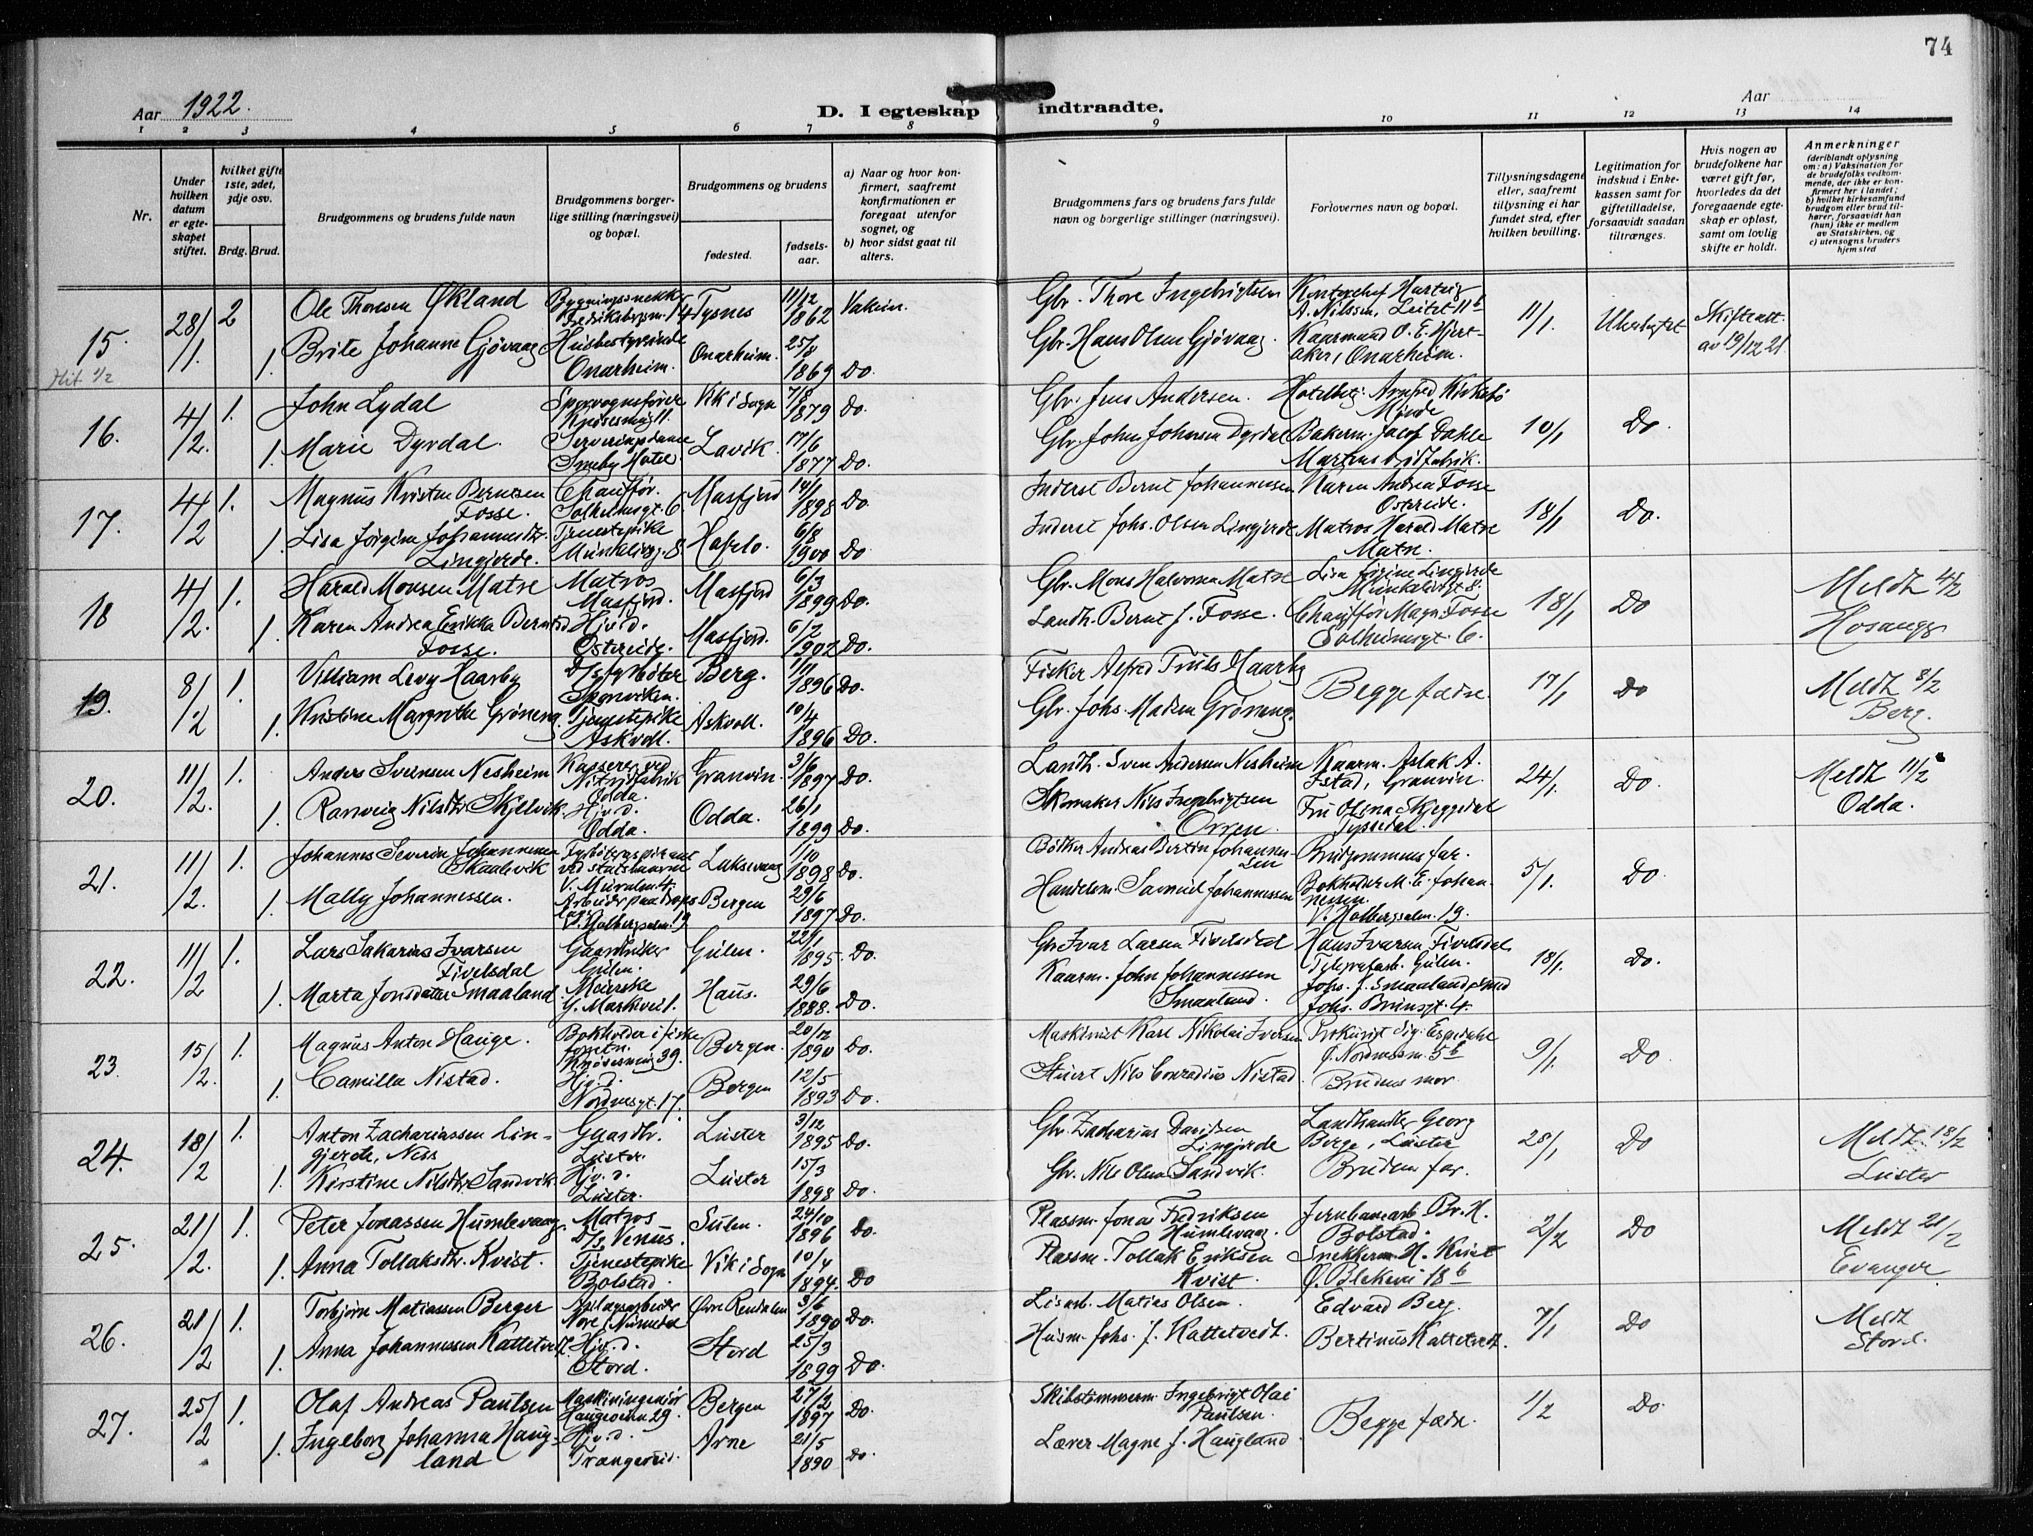 74
Aar 1922.
D. I egteskap indtraadte.
Aar
1 2 3 4 5 6 7 8 9 10 11 12 13 14
Nr.
Under hvilken datum er egteskapet stiftet.
hvilket gifte 1ste, 2det, 3dje osv.
Brdg. Brud.
Brudgommens og brudens fulde navn
Brudgommens borgerlige stilling (næringsvei) og bopæl.
Brudgommens og brudens
fødested.
fødselsaar.
a) Naar og hvor konfirmert, saafremt konfirmationen er foregaat utenfor sognet, og
b) hvor sidst gaat til alters.
Brudgommens fars og brudens fars fulde navn og borgerlige stillinger (næringsvei).
Forlovernes navn og bopæl.
Tillysningsdagene eller, saafremt tillysning ei har fundet sted, efter hvilken bevilling.
Legitimation for indskud i Enkekassen samt for giftetilladelse, forsaavidt saadan tiltrænges.
Hvis nogen av brudefolkene har været gift før, hvorledes da det foregaaende egteskap er opløst, samt om lovlig skifte er holdt.
Anmerkninger
(deriblandt oplysning om: a) Vaksination for de brudefolks vedkommende, der ikke er konfirmert her i landet; b) hvilket kirkesamfund brudgom eller brud tilhører, forsaavidt han (hun) ikke er medlem av Statskirken, og c) utensogns bruders hjemsted
15. 28/1. 2 Ole Thoresen Økland Tysnes 11/12 1862 Gbr. Thore Ingebrigtsen 11/1. Uberygtet Skifteatt. av 19/12 21
1. Brite Johanne Gjøvaag Husbestyrerinde Onarheim. Onarheim. 25/8 1869 Do. Gbr. Hans Olsen Gjøvaag. Kaarmand O. E. Hjertaker, Onarheim.
16. 4/2. 1. John Lydal Sporvognsfører Vik i Sogn 7/8 1879 Do. Gbr. Jens Andersen. 10/1 Do
1. Marie Dyrdal. Lavik. 17/6 1877 Do. Gbr. Johan Johnsen Dyrdal Bakerm. Jacob Dahle
17. 4/2 1. Magnus Kristen Berntsen Fosse. Chauffør. Solheimsgt. 6 Masfjord 14/1 1898 Do. Inderst Bernt Johannessen Karen Andrea Fosse Ostereide. 18/1 Do.
1. Lisa Jørgine Johannesdtr. Lingjerde. Tjenestepike Hafslo. 6/8 1900 Do Inderst Johs. Olsen Lingjerde Matros Harald Matre Matre.
18 4/2. 1. Harald Monsen Matre Matros Masfjord. Masfjord 6/3 1899 Do. Gbr. Mons Halvorsen Matre Lisa Jørgine Lingjerde 18/1 Do Meldt 4/2 Hosanger
1. Karen Andrea Erikka Berntsd Fosse. Hjv. d. Ostereide. Masfjord. 6/2 1902 Do. Landh. Bernt J. Fosse. Chauffør Magn. Fosse Solheimsgt. 6.
19. 8/2 1. Villiam Levy Haarby D/s fyrbøter Berg. 1/11 1896 Do. Fisker Alfred Truls Haarby Begge fædre. 17/1 Do Meldt 8/2 Berg.
1. Kristine Margrethe Grøneng. Tjenestepike Askvoll. Askvoll. 10/4 1896 Do. Gbr. Johs. Madsen Grøneng.
20. 11/2. 1. Anders Svensen Nesheim Kasserer ved Nitridfabrik Odda. Granvin. 3/6 1897 Do. Landh. Sven Andersen Nesheim Kaarm. Aslak A. Istad, Granvin. 24/1. Do. Meldt 11/2 Odda.
1. Ranveig Nilsdtr. Skjelvik. Hjv. d. Odda. Odda. 26/1 1899 Do. Skomaker Nils Ingebrigtsen Orren. Fru Olena Skjeggedal Tyssedal.
21. 11/2. 1. Johannes Severin Johannesen Skaalevik Laksevaag 1/10 1898 Do. Bøtker Andreas Bertin Johannesen Brudgommens far. 5/1. Do.
1. Mally Johannessen. Bergen 29/6 1897 Do. Handelsm. Samuel Johannessen Bokholder M. E. Johannessen. V. Holbergsalm. 19.
22. 11/2 1. Lars Sakarias Ivarsen Fivelsdal Gaardbruker Gulen. Gulen. 22/1 1895. Do. Gbr. Ivar Larsen Fivelsdal Hans Ivarsen Fivelsdal Telegrafarb. Gulen. 18/1. Do.
1. Marta Jonsdater Smaaland. Meierske Haus. 29/6 1888. Do. Kaarm. John Johannessen Smaaland. Johs. J. Smaaland Johs. Brunsgt. 4.
23. 15/2. 1. Magnus Anton Hauge. Bokholder i fiskeforretn. Bergen. 20/12 1890 Do. Maskinist Karl Nikolai Iversen Prokurist Sig. Espedahl 9/1. Do.
1. Camilla Nistad. Hjv. d. Nordnesgt. 17. Bergen 12/5 1893 Do. Stuert Nils Conradius Nistad. Brudens mor.
24. 18/2 1. Anton Zachariassen Lingjerde, Nes Gaardbr. Luster. Luster 3/12 1895 Do. Gbr. Zacharias Davidsen Lingjerde Landhandler Georg Berge, Luster 28/1 Do Meldt 18/2 Luster
1. Kirstine Nilsdtr. Sandvik. Hjv. d. Luster. Luster 15/3 1898 Do. Gbr. Nils Olsen Sandvik. Brudens far.
25. 21/2. 1. Peter Jonassen Humlevaag. Matros D/s Venus. Sulen. 24/10 1896 Do. Plassm. Jonas Fredriksen Humlevaag. Jernbanearb. Br. H. Bolstad. 2/2 Do Meldt 21/2 Evanger
1. Anna Tollaksdtr. Kvist. Tjenestepike Bolstad. Vik i Sogn 10/4 1894. Do Plassm. Tollak Eriksen Kvist. Snekkerm. H. Kvist Ø. Blekevei 18 b
26. 21/2 1. Torbjørn Matiassen Berger Anlægsarbeider Nore i Numedal Øvre Rendalen 3/6 1890 Do. Matias Olsen. Edvard Berg. 7/1 Do Meldt Stord.
1. Anna Johannessen Kattetvedt. Hjv. d. Stord. Stord 25/3 1899 Do. Husm. Johs. J. Kattetvedt. Bertinus Kattetvedt.
27. 25/2 1. Olaf Andreas Paulsen Maskiningeniør Haugeveien 29. Bergen 27/2 1897 Do. Skibstømmerm. Ingebrigt Olai Paulsen. Begge fædre. 1/2 Do.
1. Ingeborg Johanna Haugland Hjv. d. Trangereid. Arne 21/5 1890 Do. Lærer Magne J. Haugland.